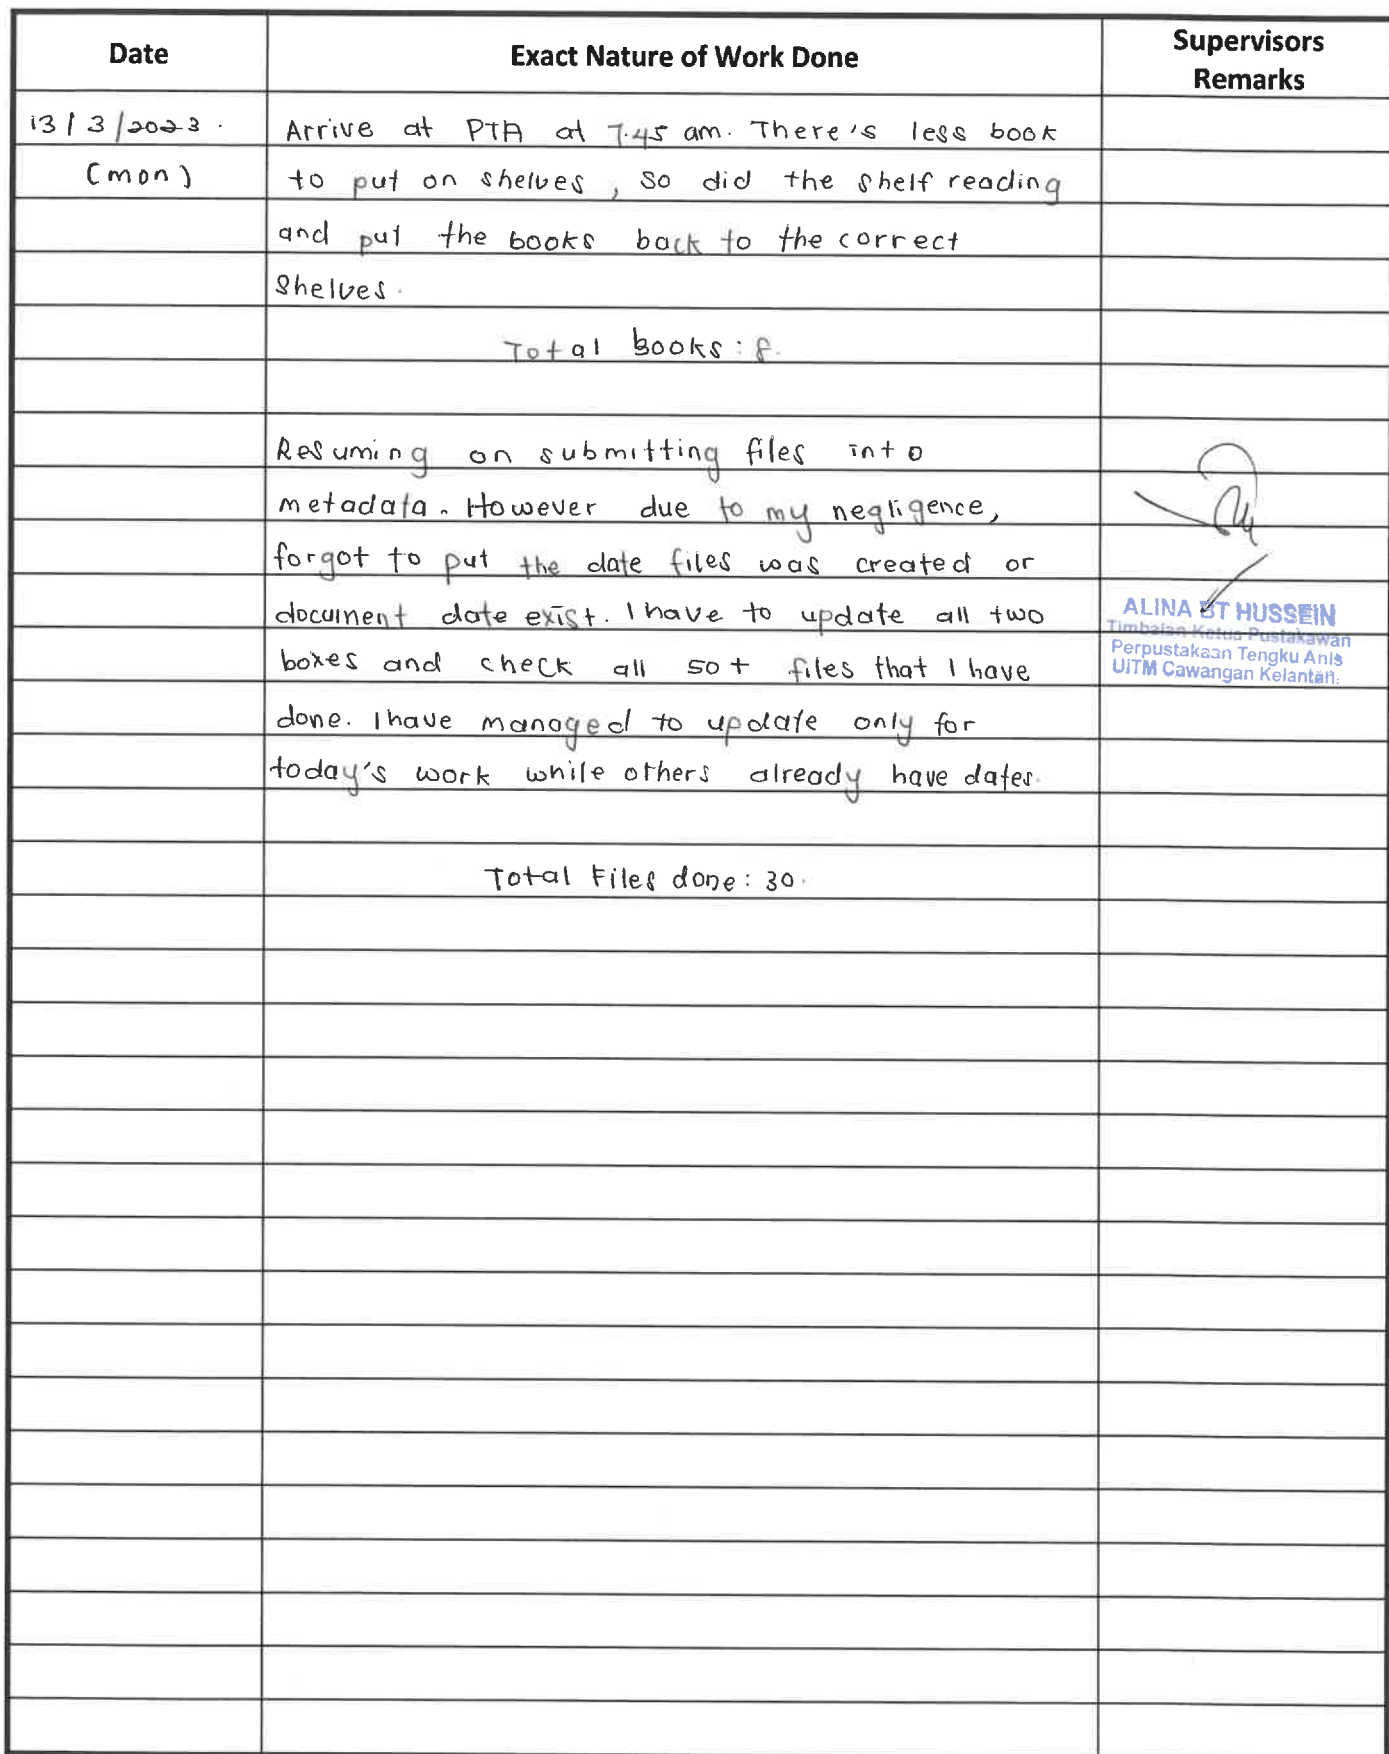 Date
Exact Nature of Work Done
Supervisors
Remarks
13/3/2023.
(mon)
Arrive at PTA at 7.45 am. There's less book
to put on shelves, so did the shelf reading
and put the books back to the correct
Shelves.
Total Books: 8.
Resuming on submitting files into
metadata. However due to my negligence,
forgot to put the date files was created or
document date exist. I have to update all two
boxes and check all 50+ files that I have
done. I have managed to update only for
today's work while others already have dates.
Total Files done: 30.
ALINA BT HUSSEIN
Timbalan Ketua Pustakawan
Perpustakaan Tengku Anis
UiTM Cawangan Kelantan.